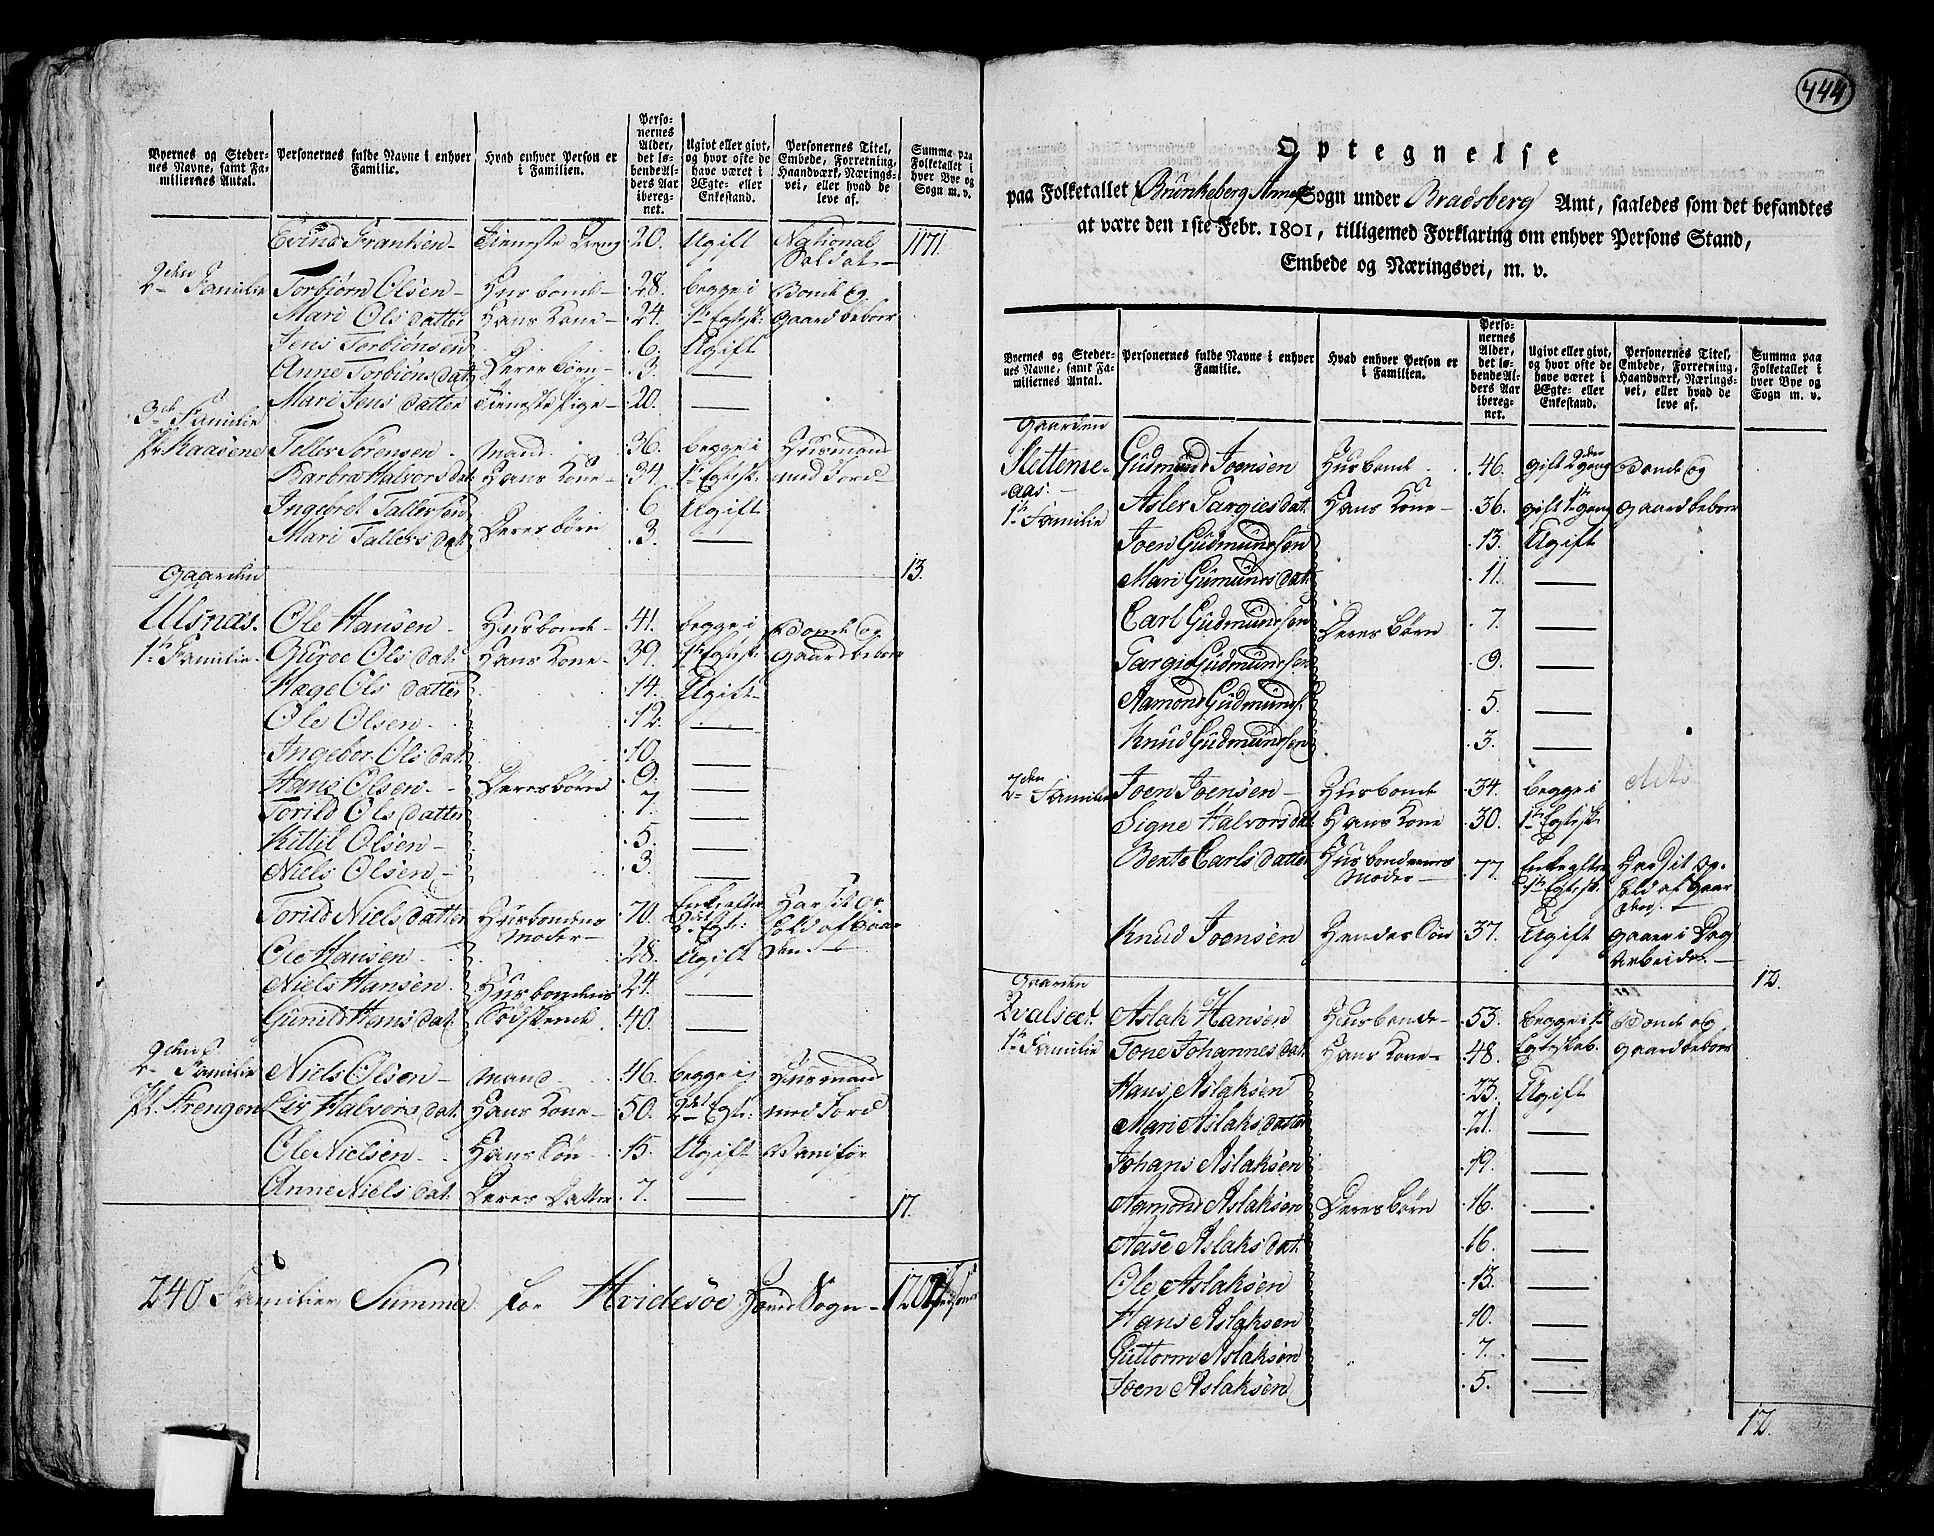 Byernes og Steder-
nes Navne, samt Fa-
miliernes Antal.
Personernes fulde Navne i enhver
Familie.
Hvad enhver Person er
i Familien.
Perso-
nernes
Alder,
det lø-
bende Al-
ders Aar
iberegn-
net.
Ugivt eller givt,
og hvor ofte de
have været i
Ægte- eller
Enkestand.
Personernes Titel,
Embede, Forretning,
Haandværk, Nærings-
vei, eller hvad de
leve af.
Summa paa
Folketallet i
hver Bye og
Sogn m. v.
Evind Frantsen Tieneste Dreng 20. Ugift National Soldat 1171.
2den Familie Torbiorn Olsen Husbonde 28. begge i Bonde og
Mari Olsdatter Hans Kone 24. 1te Egtesk: Gaardbeboer
Jens Torbiönsen 6. Ugift
Anne Torbiöns dat: Deres børn 3. —
Mari Jens datter Tieneste Pige 20. —
3de Familie
Pl: Kaasene Tellef Sörensen Mand 36. begge i Husmand
Barbra Halvors dat: Hans Kone 34. 1te Egtesk: med Jord
Ingebret Tallefsen 6 Ugift
Mari Tallefs dat: Deres børn 3. —
13.
Gaarden
Ulsnæs. Ole Hansen Husbonde 41. begge i Bonde og
1te Familie Guroe Ols dat: Hans Kone 39. 1te Egtesk: Gaardbeboer
Hage Ols datter 14. Ugift
Ole Olsen 12. —
Ingebor Ols dat: 10. —
Hans Olsen Deres børn 9. —
Torild Ols datter 7. —
Kittil Olsen 5. —
Niels Olsen 3. —
Torild Niels datter Husbondens Moder 70. Enke efter 2det Egte: Har sit Op-
hold af Gaar-
den.
Ole Hansen 28. Ugift
Niels Hansen Husbondens 24. —
Gunild Hans dat: Södskende 40. —
2den Familie Niels Olsen Mand 46. begge i Husmand
Pl. Strengen Liv Halvors dat: Hans Kone 50. 2det Egte: med Jord
Ole Nielsen Hans Sön 15. Ugift Vanför
Anne Niels dat: Deres Datter 7. —
17.
240 Familier Summa for Hvidesöe Hoved Sogn 1201
444
Optegnelse
paa Folketallet i Brunkeberg Annex Sogn under Bradsberg Amt, saaledes som det befandtes
at være den 1ste Febr. 1801, tilligemed Forklaring om enhver Persons Stand,
Embede og Næringsvei, m. v.
Byernes og Steder-
nes Navne, samt Fa-
miliernes Antal.
Personernes fulde Navne i enhver
Familie.
Hvad enhver Person er
i Familien.
Perso-
nernes
Alder,
det lø-
bende Al-
ders Aar
iberegn-
net.
Ugivt eller givt,
og hvor ofte de
have været i
Ægte- eller
Enkestand.
Personernes Titel,
Embede, Forretning,
Haandværk, Nærings-
vei, eller hvad de
leve af.
Summa paa
Folketallet i
hver Bye og
Sogn m. v.
Gaarden
Slettene- Gudmund Joensen Husbonde 46. gift 2den gang Bonde og
aas. Asler Targies dat. Hans Kone 36. gift 1te gang Gaardbeboer
1te Familie
Joen Gudmundsen 13. Ugift
Mari Gumunds dat: 11. —
Carl Gudmundsen Deres børn 7. —
Targie Gudmundsen 9. —
Aamond Gudmunds. 5. —
Knud Gudmundsen 3. —
2den Familie Joen Joensen Husbonde 34. begge i dito
Signe Halvors dat: Hans Kone 30. 1te Egtesk:
Berte Carls datter Husbondens Moder 77. Enke efter 1te Egtesk: Har sit Op-
hold af Gaar-
den.
Knud Joensen Hendes Sön 37. Ugift Gaaer i Dag
Arbeide.
12.
Gaarden
Qvalsæt. Aslak Hansen Husbonde 53. begge i 1te Bonde og
1te Familie Tone Johannes dat. Hans Kone 48. Egteskab. Gaardbeboer
Hans Aslaksen 23. Ugift
Mari Aslaks datter 21. —
Johans Aslaksen 19. —
Aamond Aslaksen Deres børn 16. —
Aase Aslaks dat. 16. —
Ole Aslaksen 13. —
Hans Aslaksen 10. —
Guttorm Aslaksen 7. —
Joen Aslaksen 5. —
12.